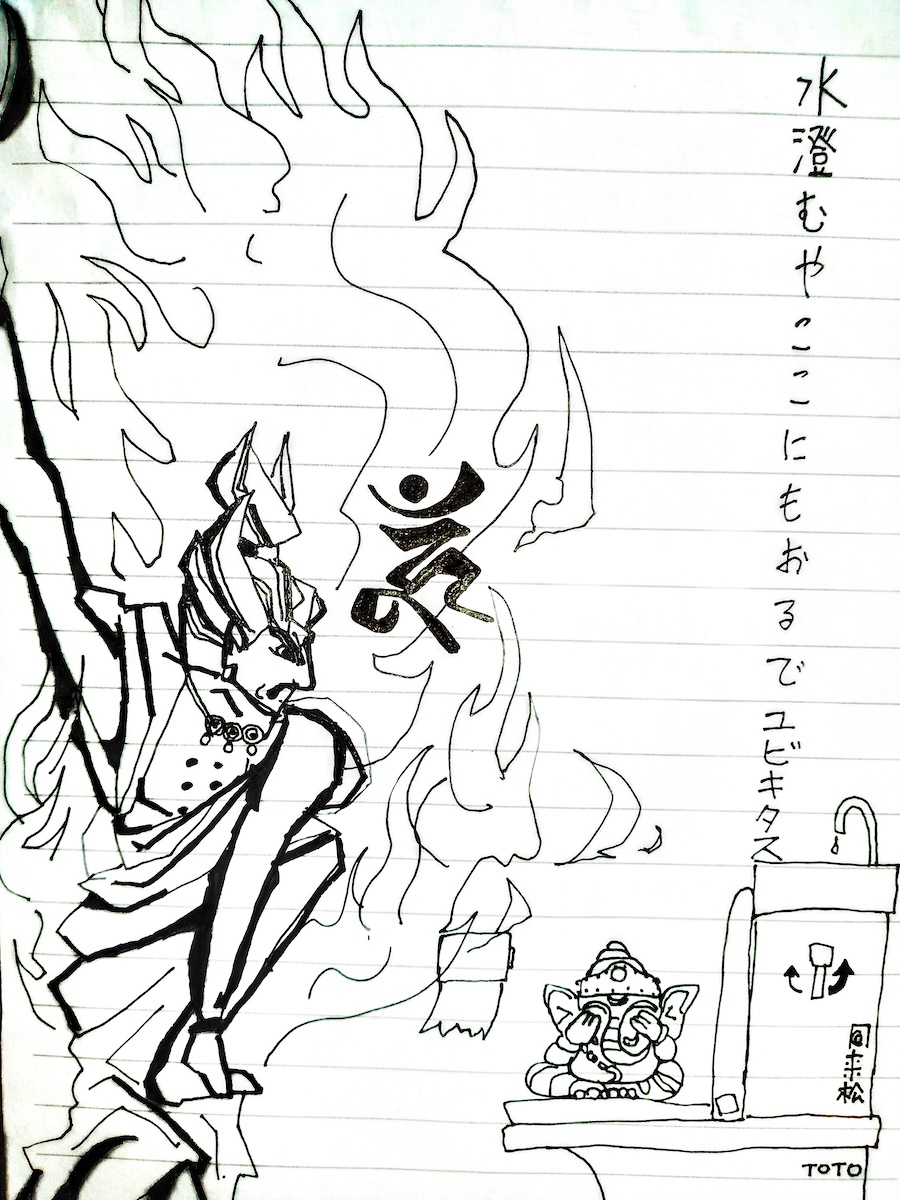 水澄むやここにもおるでユビキタス
回来松
TOTO